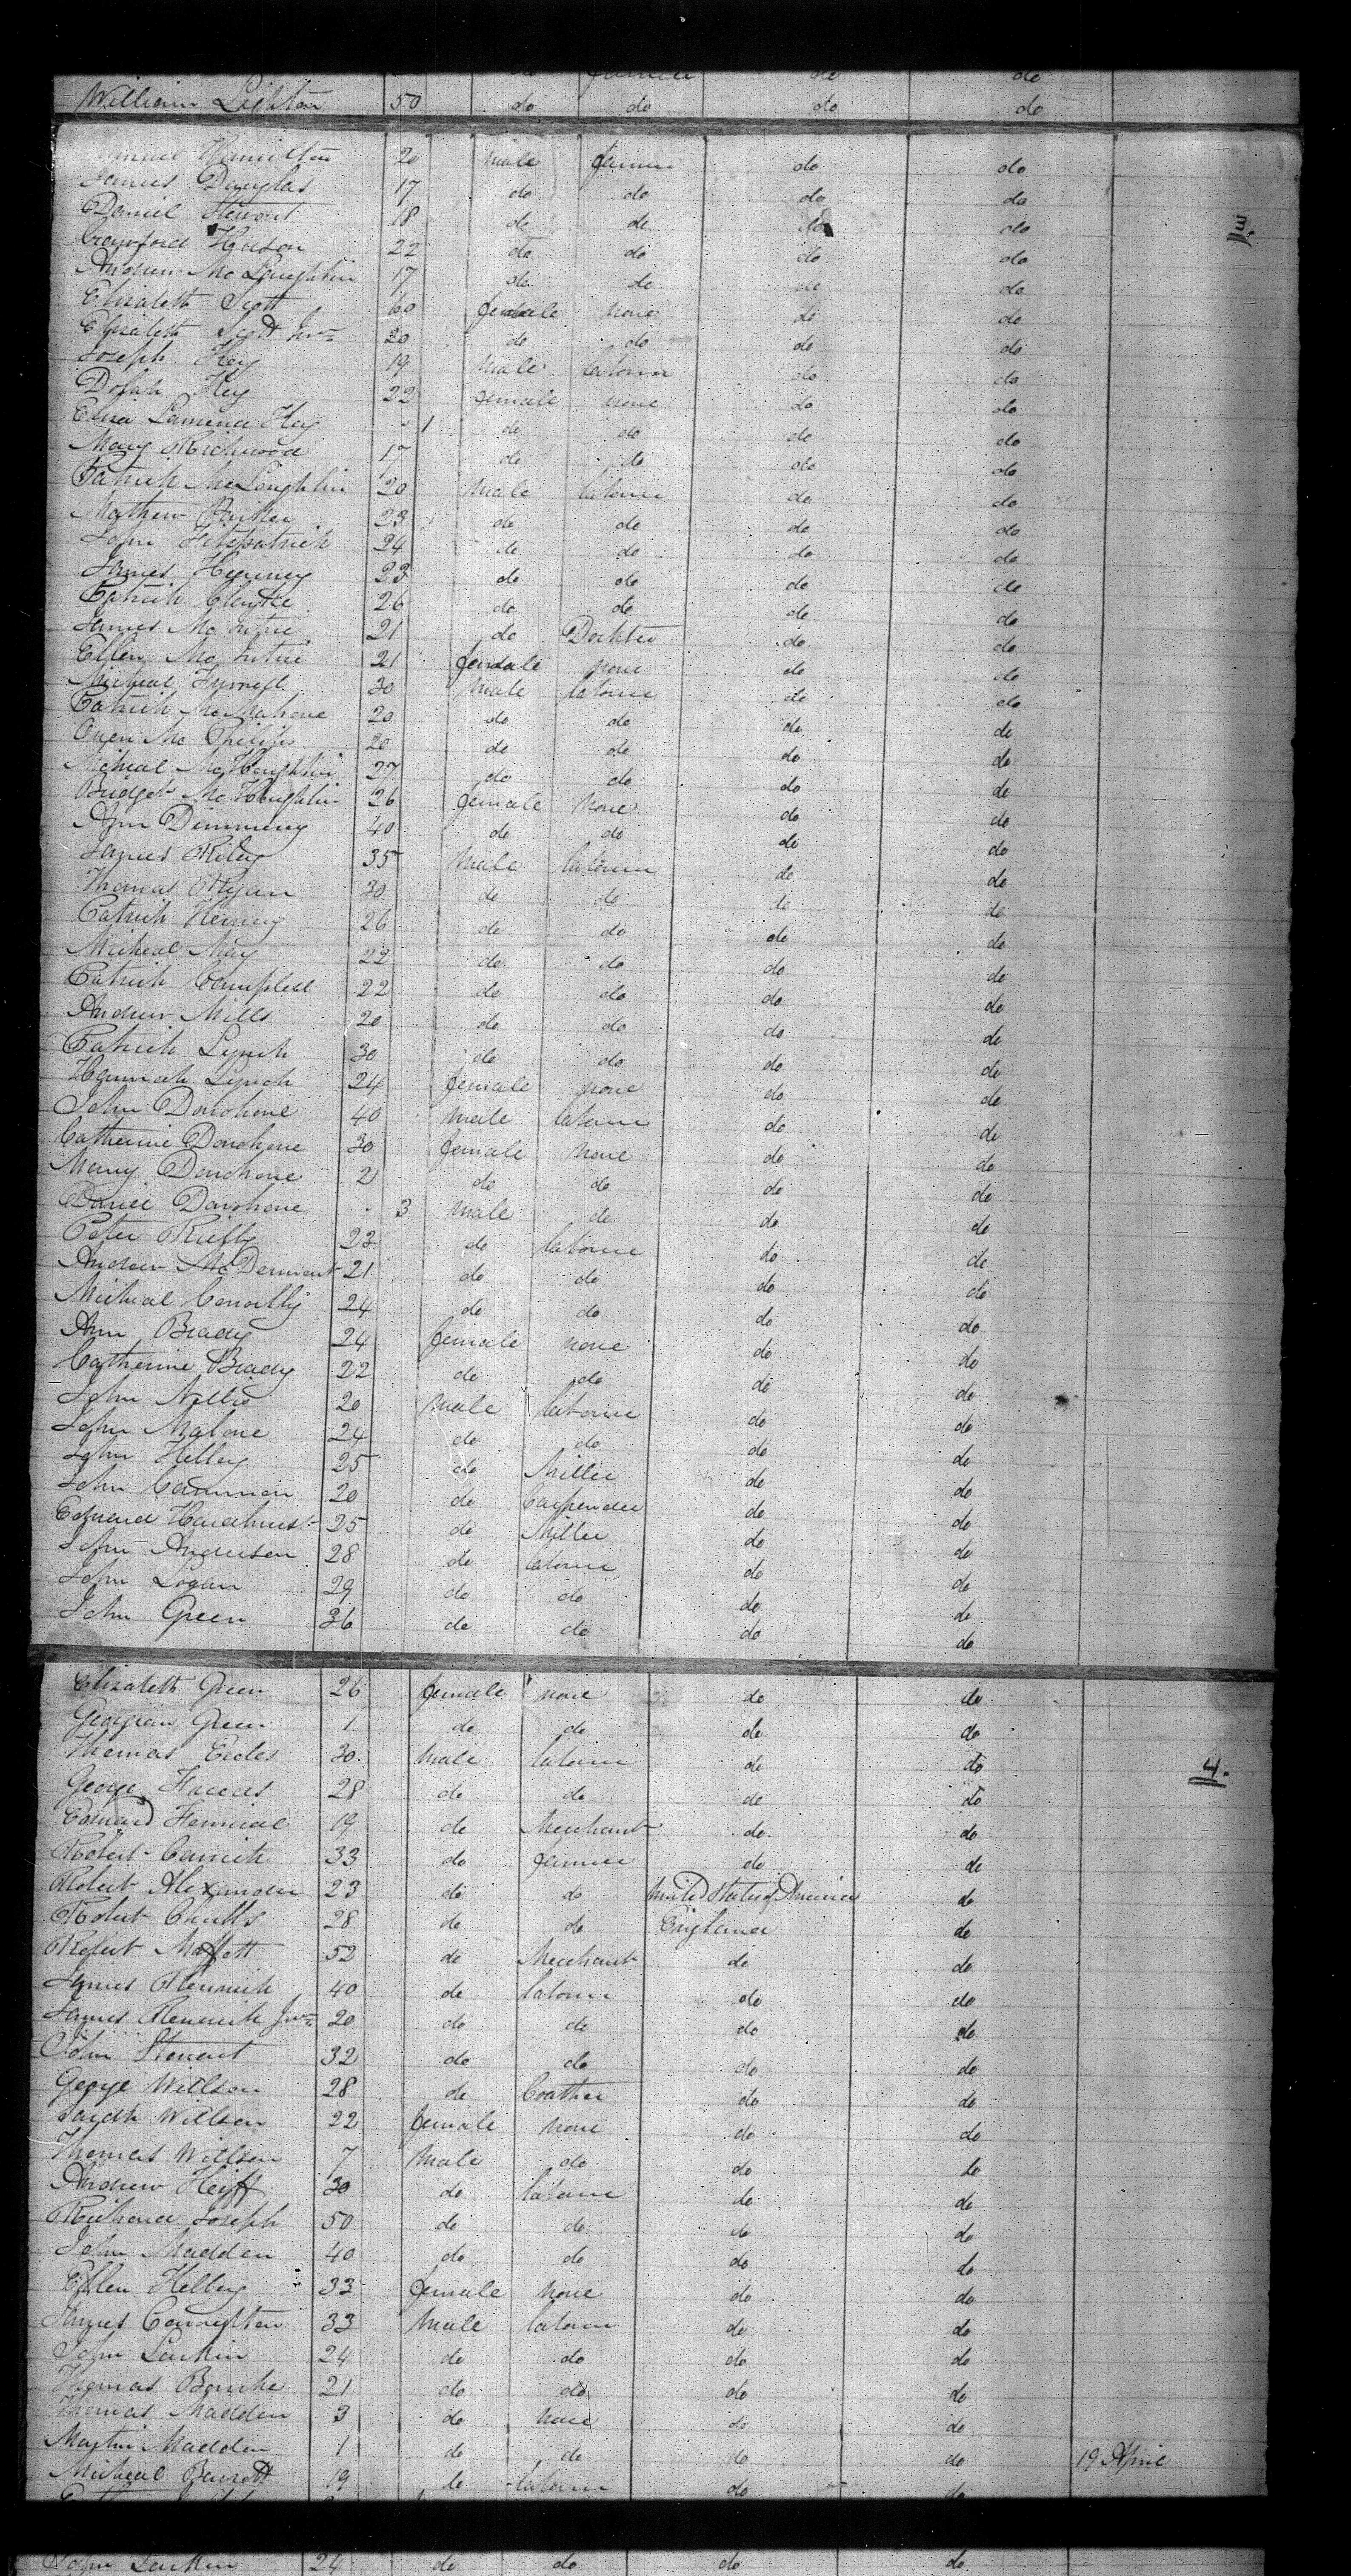 William Lighton 50 do do do do
Hamilton 20 male farmer do do
James Douglas 17 do do do do
Daniel Stewart 18 do do do do
3.
Crawford Hodson 22 do do do do
Andrew McLaughlin 17 do do do do
Elizabeth Scott 60 female none do do
Elizabeth Scott Junr 20 do do do do
Joseph Key 19 male labourer do do
Key 22 female none do do
Eliza Key 1 do do do do
Mary Richwood 17 do do do do
Patrick McLoughlin 20 male labourer do do
Mathew 23 do do do do
John Fitzpatrick 24 do do do do
James 23 do do do do
Patrick Clarke 26 do do do do
James McIntire 21 do Docktor do do
Ellen McIntire 21 female none do do
Micheal 30 male labourer do do
Patrick McMahone 20 do do do do
Owen McPhilips 20 do do do do
Micheal McHoughlin 27 do do do do
Bridget McHoughlin 26 female none do do
Ann 40 do do do do
James Riley 35 male labourer do do
Thomas Ryan 30 do do do do
Patrick 26 do do do do
Micheal May 22 do do do do
Patrick Campbell 22 do do do do
Andrew Mills 20 do do do do
Patrick Lynch 30 do do do do
Hannah Lynch 24 female none do do
John Donohoue 40 male labourer do do
Catherine Donohoue 30 female none do do
Mary Donohoue 21 do do do do
Daniel Donohoue - 3 male do do do
Peter Rielly 23 do labourer do do
Andrew McDermont 21 do do do do
Micheal Conolly 24 do do do do
Ann Brady 24 female none do do
Catherine Brady 22 do do do do
John Nellis 20 male labourer do do
John Malone 24 do do do do
John Kelley 25 do Miller do do
John Cammon 20 do Carpender do do
Edward 25 do Miller do do
John Anderson 28 do labourer do do
John Logan 29 do do do do
John Green 36 do do do do
Elizabeth Green 26 female none do do
Georgian Green 1 do do do do
Thomas Eccles 30 male labourer do do
4.
George 28 do do do do
Edward 19 do Merchant do do
Robert Carrick 33 do farmer do do
Robert Alexander 23 do do United States of America do
Robert 28 do do England do
Robert Moffott 52 do Merchant do do
James Rennick 40 do labourer do do
James Rennick Junr 20 do do do do
John Stewart 32 do do do do
George Willson 28 do do do
Sarah Willson 22 female none do do
Thomas Willson 7 male do do do
Andrew 30 do labourer do do
Richard Joseph 50 do do do do
John Madden 40 do do do do
Ellen Kelley 33 female none do do
James 33 male labourer do do
John Larkin 24 do do do do
Thomas Bourke 21 do do do do
Thomas Madden 3 do none do do
Martin Madden 1 do do do do 19 April
Micheal 19 do labourer do do
John Larkin 24 do do do do